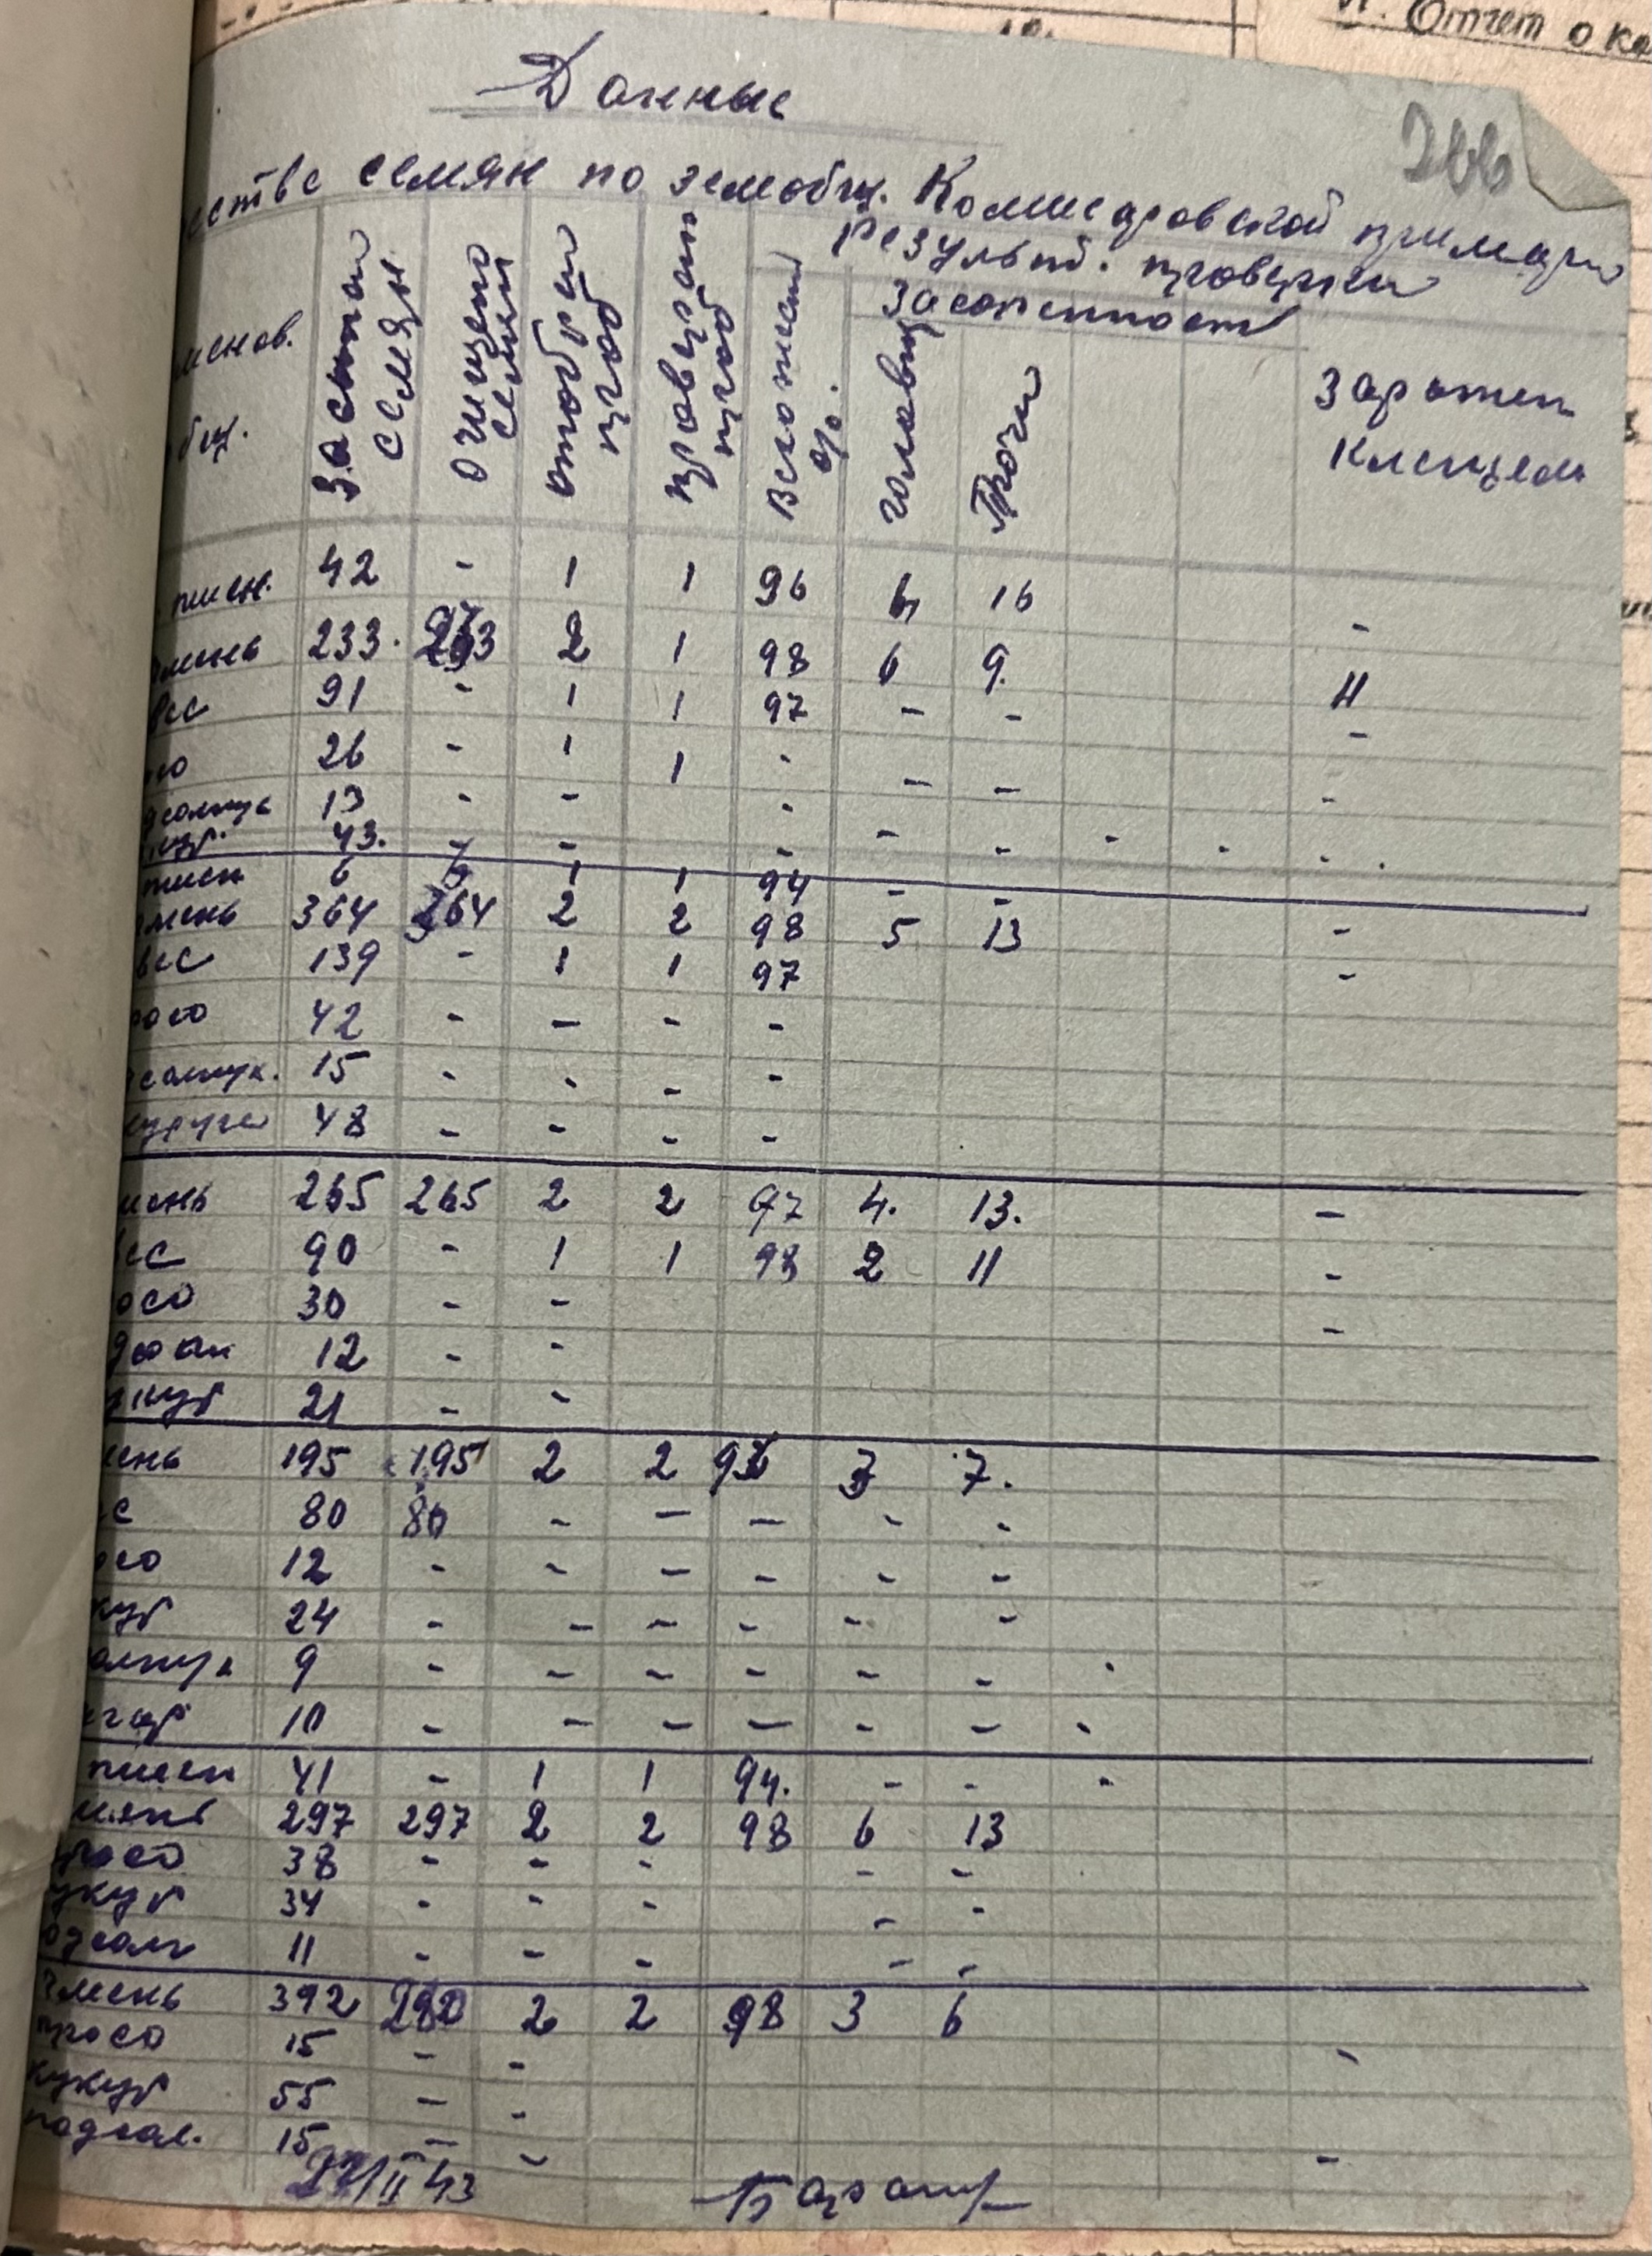 Отчет о ка
266
Данные
естве семян по земобщ. Комисаровской примари
Результ. проверки
засоренность
менов.
общ.
Засыпан семян
Очищено семян
отобран проб
проверен проб
Влажност %.
головн
Проч
Заражен клещем
пшен. 42 - 1 1 96 6 16 -
мень 233. 2 1 98 6 9. 11
вес 91 - 1 1 97 - - -
со 26 - 1 1 - - - -
дсолнух 13 - - - - -
кур. 43. - - - - - - - -
пшен 6 6 1 1 94 - -
мень 364 364 2 2 98 5 13 -
вес 139 - 1 1 97 -
росо 42 - - - -
дсолнух. 15 - - - -
курузы 48 - - - -
мень 265 265 2 2 97 4. 13. -
вес 90 - 1 1 98 2 11 -
росо 30 - - -
12 - -
укур 21 - -
мень 195 195 2 2 3 7.
с 80 80 - - - - -
осо 12 - - - - - -
кур 24 - - - - - -
олнух 9 - - - - - - -
10 - - - - - - -
пшен 41 - 1 1 94. - - -
мень 297 297 2 2 98 6 13
просо 38 - - - - -
укур 34 - - - - -
одсолн 11 - - - - -
чмень 392 2 2 98 3 6
просо 15 - - -
кукур 55 - -
подсол. 15 - - -
27/II 43